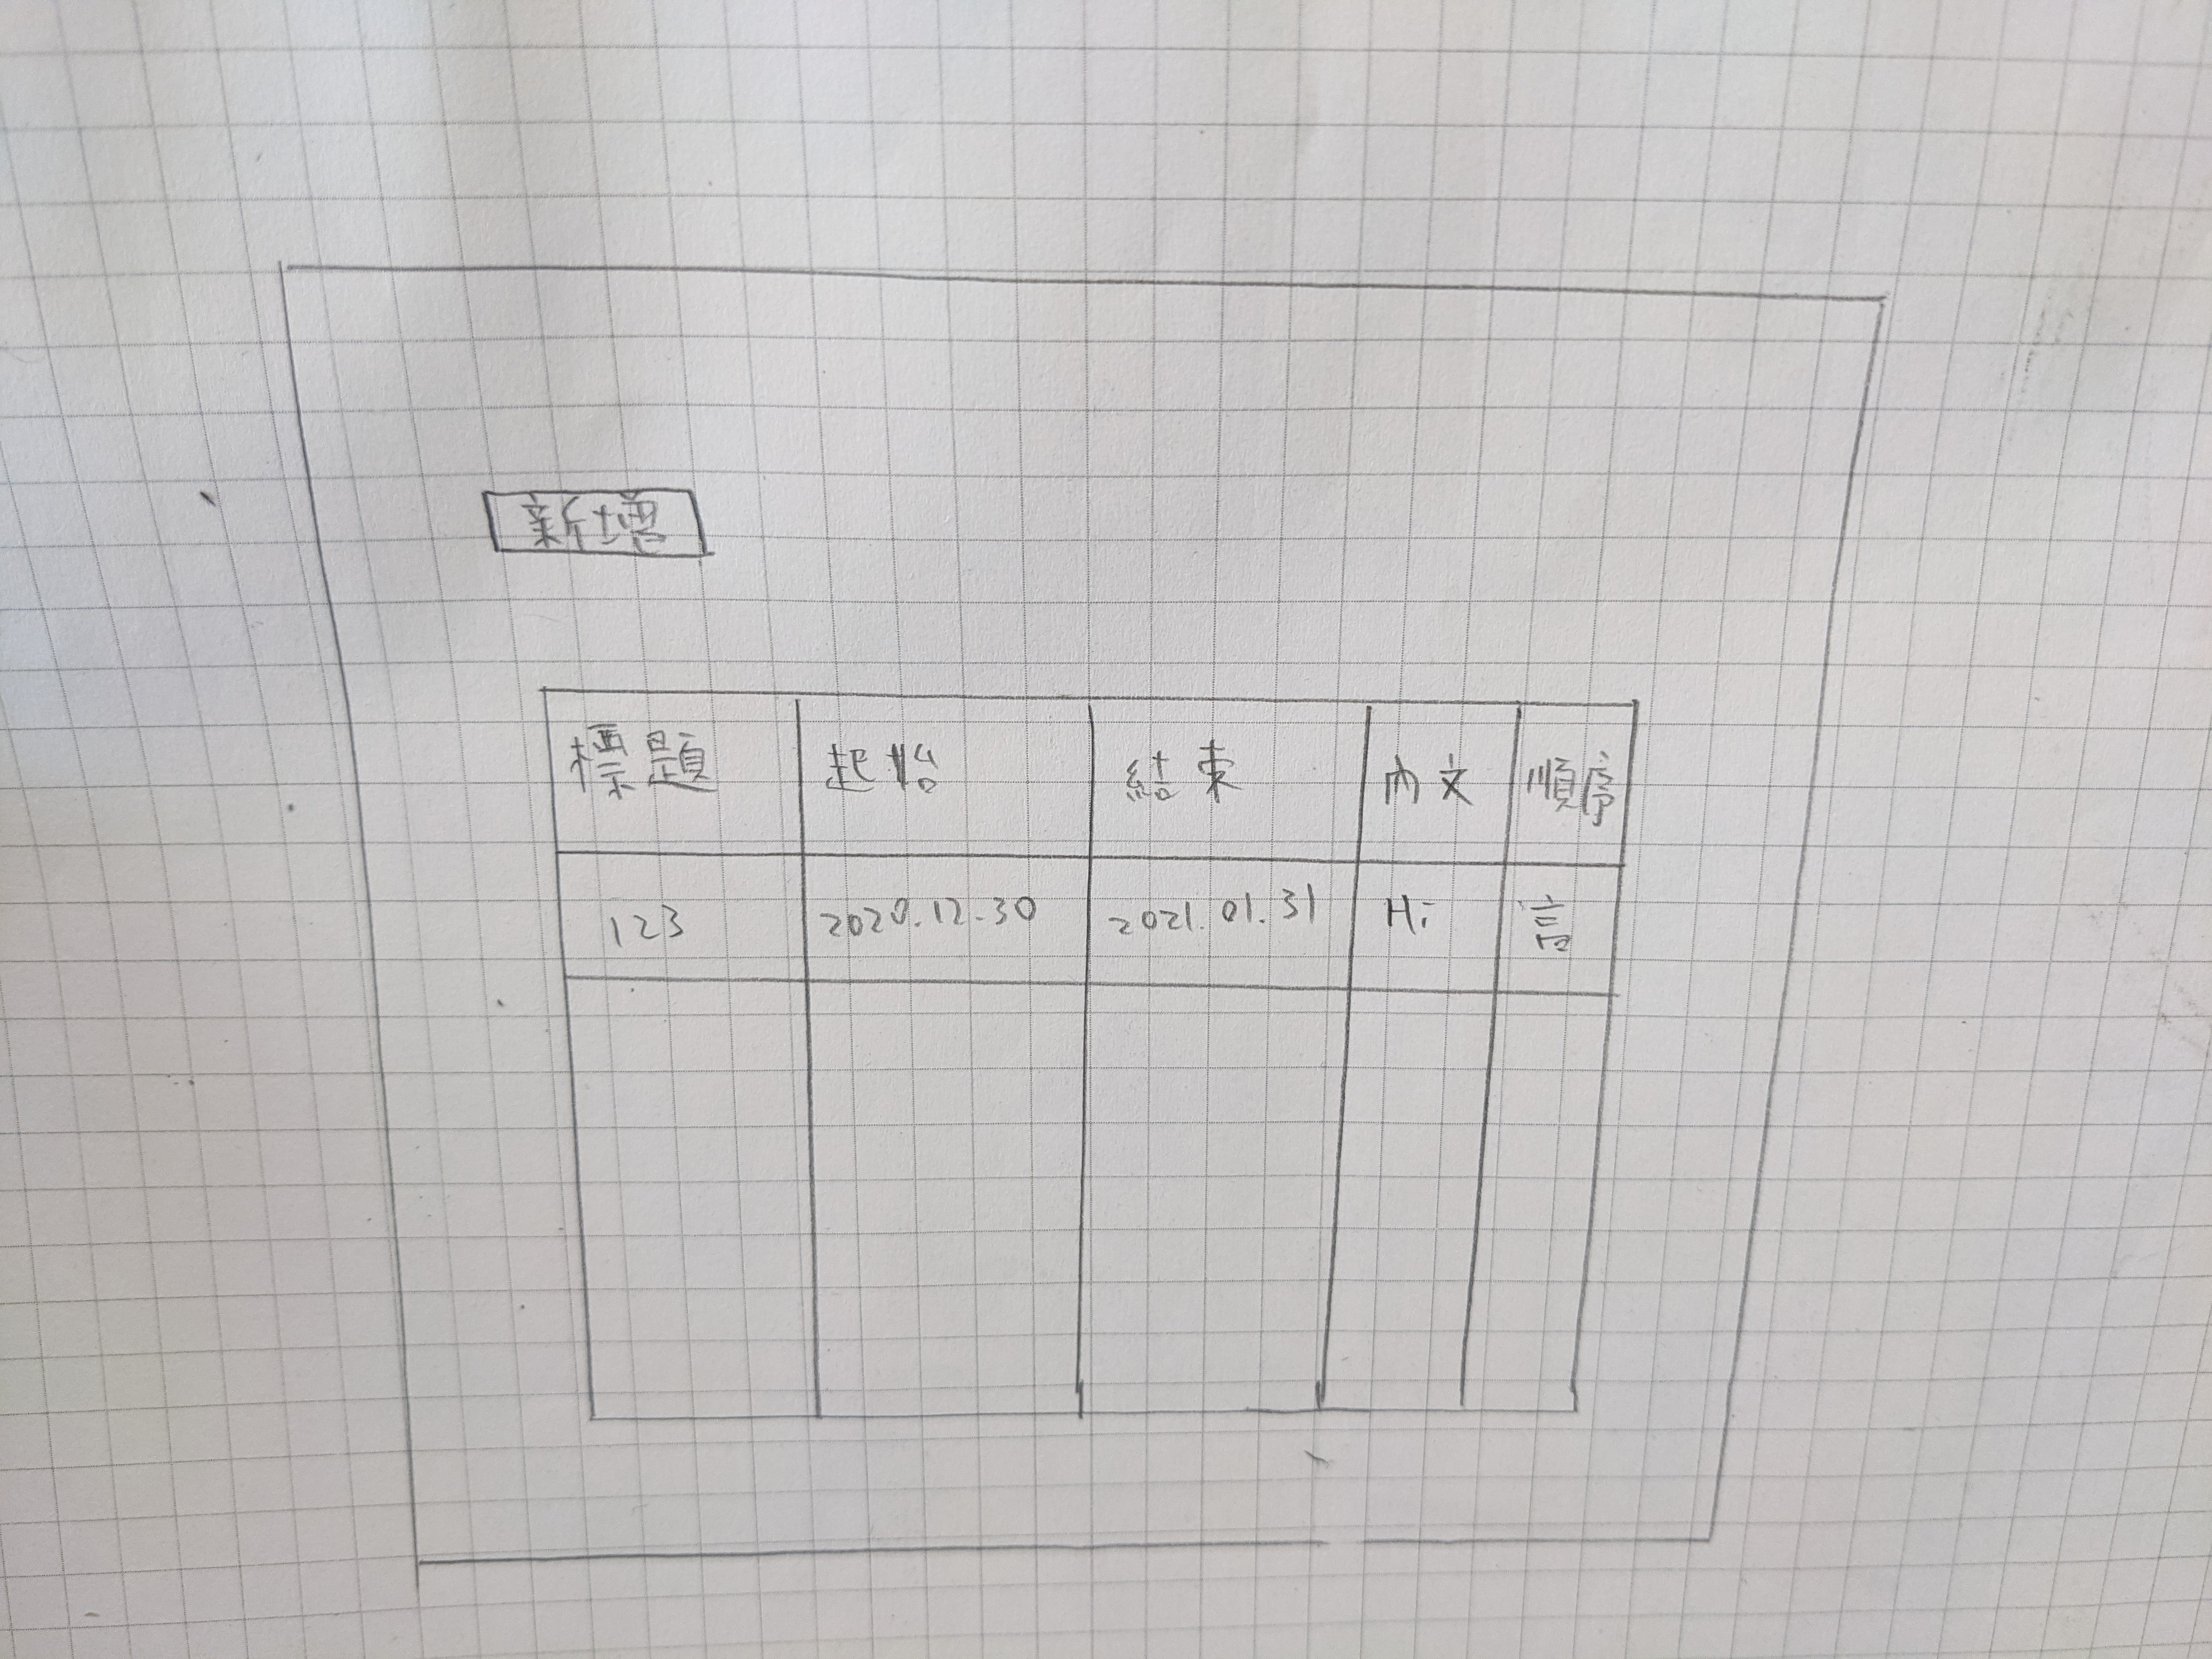 新增
標題 起始 結束 內文 順序
123 2020.12.30 2021.01.31 Hi